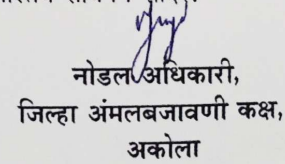 नोडल अधिकारी,
जिल्हा अंमलबजावणी कक्ष,
अकोला